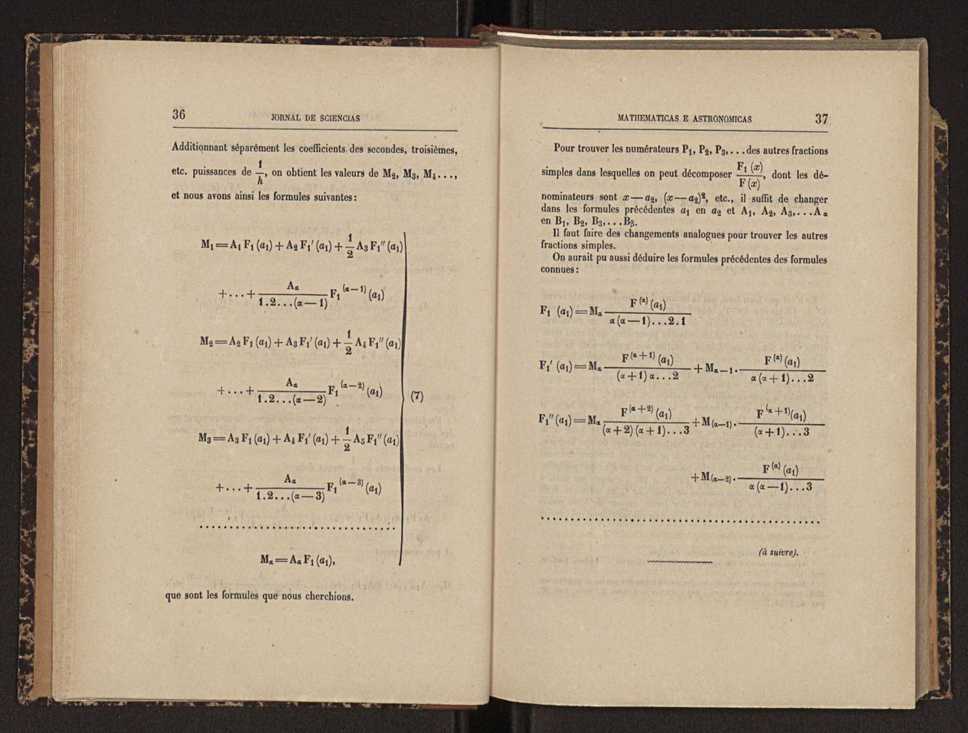 36 JORNAL DE SCIENCIAS
Additionnant séparément les coefficients des secondes, troisièmes,
etc. puissances de 1/h, on obtient les valeurs de M₂, M₃, M₄...,
et nous avons ainsi les formules suivantes:
M₁=A₁F₁(a₁)+A₂F₁′(a₁)+1/2 A₃F₁″(a₁)
+...+ Aα/(1.2...(α—1)) F₁^(α—1)(a₁)
M₂=A₂F₁(a₁)+A₃F₁′(a₁)+1/2 A₄F₁″(a₁)
+...+ Aα/(1.2...(α—2)) F₁^(α—2)(a₁) (7)
M₃=A₃F₁(a₁)+A₄F₁′(a₁)+1/2 A₅F₁″(a₁)
+...+ Aα/(1.2...(α—3)) F₁^(α—3)(a₁)
. . . . . . . . . . . . . . . . . . . . . . . . . . . . . .
Mα=AαF₁(a₁),
que sont les formules que nous cherchions.
MATHEMATICAS E ASTRONOMICAS 37
Pour trouver les numérateurs P₁, P₂, P₃,...des autres fractions
simples dans lesquelles on peut décomposer F₁(x)/F(x), dont les dé-
nominateurs sont x—a₂, (x—a₂)², etc., il suffit de changer
dans les formules précédentes a₁ en a₂ et A₁, A₂, A₃,...Aα
en B₁, B₂, B₃,...B₃.
Il faut faire des changements analogues pour trouver les autres
fractions simples.
On aurait pu aussi déduire les formules précédentes des formules
connues:
F₁ (a₁)=Mα F^(α)(a₁)/(α(α—1)...2.1)
F₁′ (a₁)=Mα F^(α+1)(a₁)/((α+1)α...2) +Mα—1. F^(α)(a₁)/(α(α+1)...2)
F₁″(a₁)=Mα F^(α+2)(a₁)/((α+2)(α+1)...3) +M(α—1). F^(α+1)(a₁)/((α+1)...3)
+M(α—2). F^(α)(a₁)/(α(α—1)...3)
. . . . . . . . . . . . . . . . . . . . . . . . . . . . . .
(à suivre).